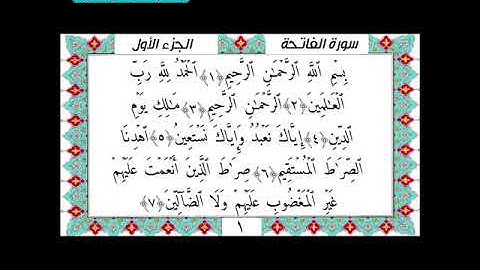 سورة الفاتحة
الجزء الأول
بِسْمِ ٱللَّهِ ٱلرَّحْمَٰنِ ٱلرَّحِيمِ ﴿١﴾ ٱلْحَمْدُ لِلَّهِ رَبِّ
ٱلْعَٰلَمِينَ ﴿٢﴾ ٱلرَّحْمَٰنِ ٱلرَّحِيمِ ﴿٣﴾ مَٰلِكِ يَوْمِ
ٱلدِّينِ ﴿٤﴾ إِيَّاكَ نَعْبُدُ وَإِيَّاكَ نَسْتَعِينُ ﴿٥﴾ ٱهْدِنَا
ٱلصِّرَٰطَ ٱلْمُسْتَقِيمَ ﴿٦﴾ صِرَٰطَ ٱلَّذِينَ أَنْعَمْتَ عَلَيْهِمْ
غَيْرِ ٱلْمَغْضُوبِ عَلَيْهِمْ وَلَا ٱلضَّآلِّينَ ﴿٧﴾
١